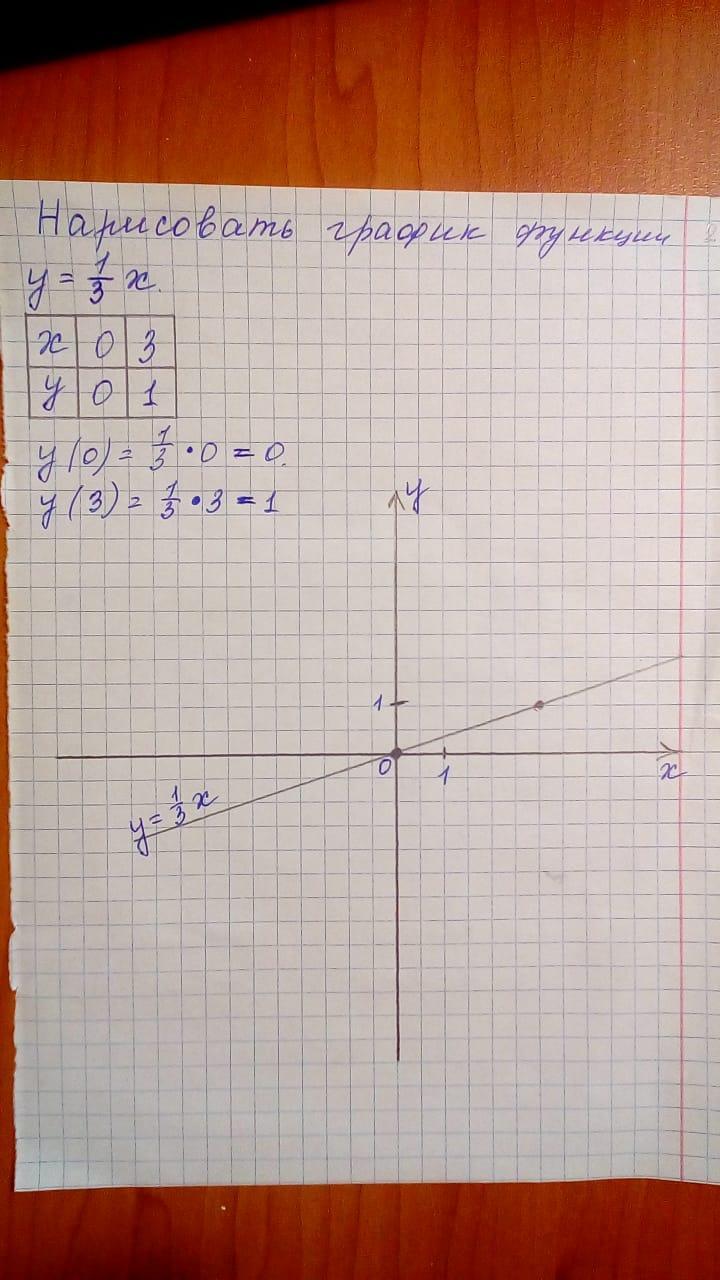 Нарисовать график функции
y = 1/3 x.
x 0 3
y 0 1
y(0) = 1/3 · 0 = 0.
y(3) = 1/3 · 3 = 1
y
1
0 1 x
y = 1/3 x